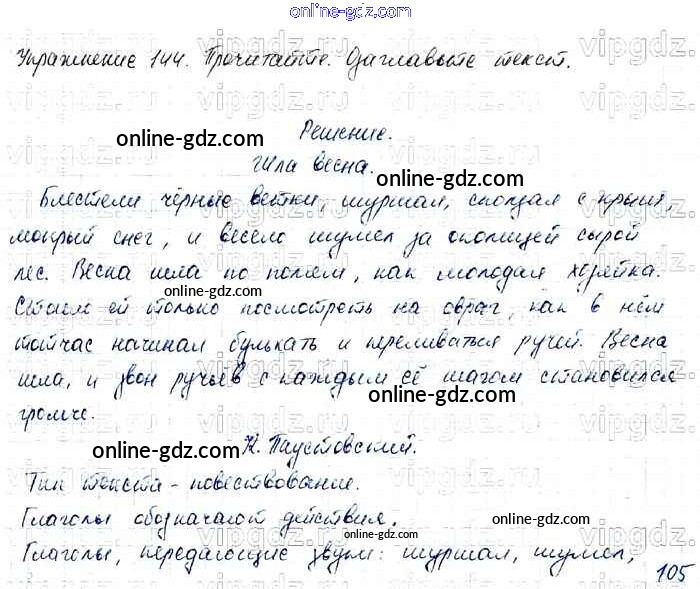 online-gdz.com
Упражнение 144. Прочитайте. Озаглавьте текст.
online-gdz.com
Решение.
Шла весна.
online-gdz.com
Блестели чёрные ветки, шуршал, сползая с крыш,
мокрый снег, и весело шумел за околицей сырой
лес. Весна шла по полям, как молодая хозяйка.
online-gdz.com
Стоило ей только посмотреть на овраг, как в нём
тотчас начинал булькать и переливаться ручей. Весна
online-gdz.com
шла, и звон ручьёв с каждым её шагом становился
громче.
К. Паустовский.
online-gdz.com
Тип текста - повествование.
Глаголы обозначают действия.
online-gdz.com
Глаголы, передающие звуки: шуршал, шумел,
online-gdz.com
105
vipgdz.ru